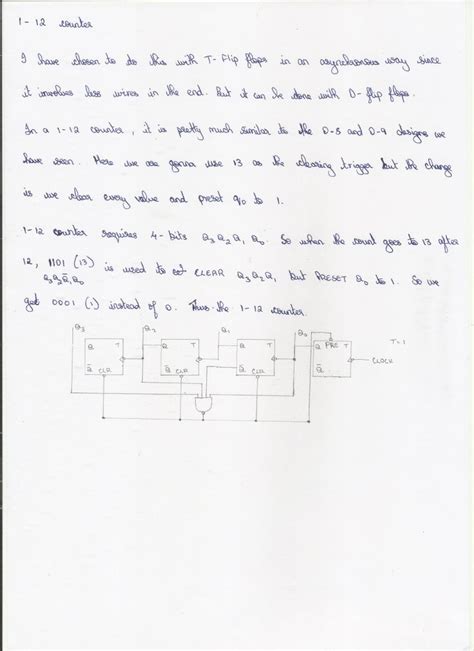 1-12 counter
I have chosen to do this with T-Flip flops in an asynchronous way since
it involves less wires in the end. But it can be done with D-flip flops.
In a 1-12 counter, it is pretty much similar to the 0-5 and 0-9 designs we
have seen. Here we are gonna use 13 as the clearing trigger but the change
is we clear every value and preset q0 to 1.
1-12 counter requires 4-bits Q3 Q2 Q1 Q0. So when the count goes to 13 after
12, 1101 (13) is used to CLEAR Q3 Q2 Q1 but PRESET Q0 to 1. So we
Q3Q2Q̅1Q0
get 0001 (1) instead of 0. Thus the 1-12 counter.
Q3 Q2 Q1 Q0
Q T Q T Q T Q PRE T T=1
CLOCK
Q̅ CLR Q̅ CLR Q̅ CLR Q̅